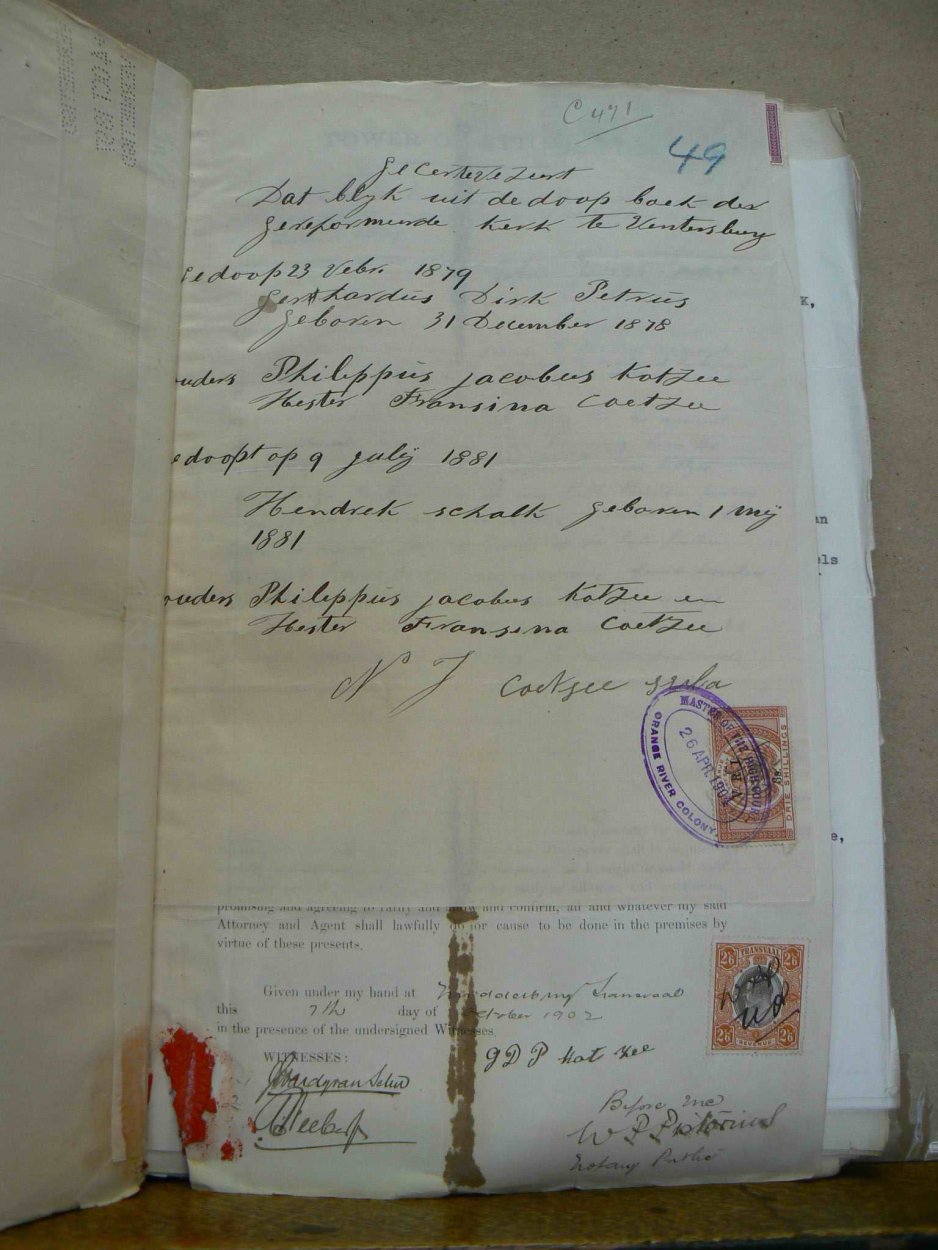 C 471
49
gecerteveseert
Dat blyk uit de doop boek der
gereformeerde kerk te Ventersburg
gedoop 23 Vebr. 1879
gerhardus Dirk Petrus
geboren 31 December 1878
ouders Philippus jacobus Kotzee
Hester Fransina Coetzee
edoopt op 9 july 1881
Hendrek schalk geboren 1 mij
1881
ouders Philippus jacobus Kotzee en
Hester Fransena Coetzee
N J Coetzee
MASTER OF THE HIGH COURT
26 APR 190
ORANGE RIVER COLONY
V.R.I.
3s.
DRIE SHILLINGS
promising and agreeing to ratify and allow and confirm, all and whatever my said
Attorney and Agent shall lawfully do or cause to be done in the premises by
virtue of these presents.
Given under my hand at Middelburg Transvaal
this 7th day of October 1902
in the presence of the undersigned Witnesses.
WITNESSES:
G D P Kotzee
Before me
W P Pistorius
Notary Public
TRANSVAAL
2/6 2/6
2/6 2/6
REVENUE
K,
an
els
e,